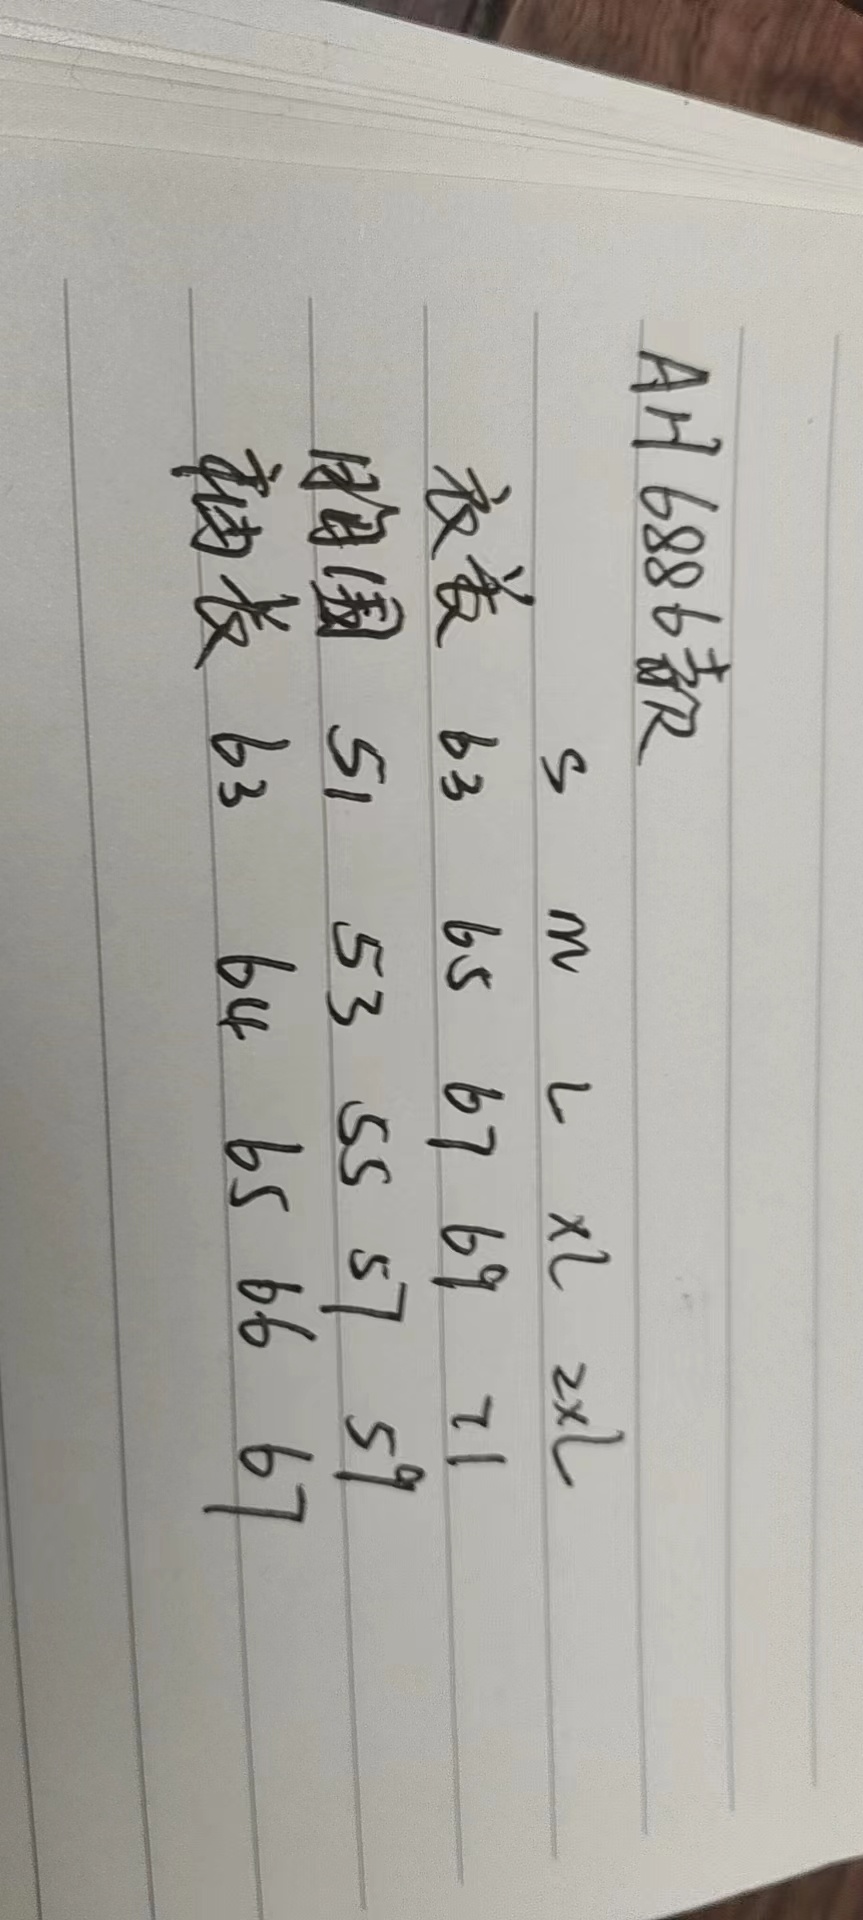 AH6886款
S M L XL 2XL
衣长 63 65 67 69 71
胸围 51 53 55 57 59
袖长 63 64 65 66 67